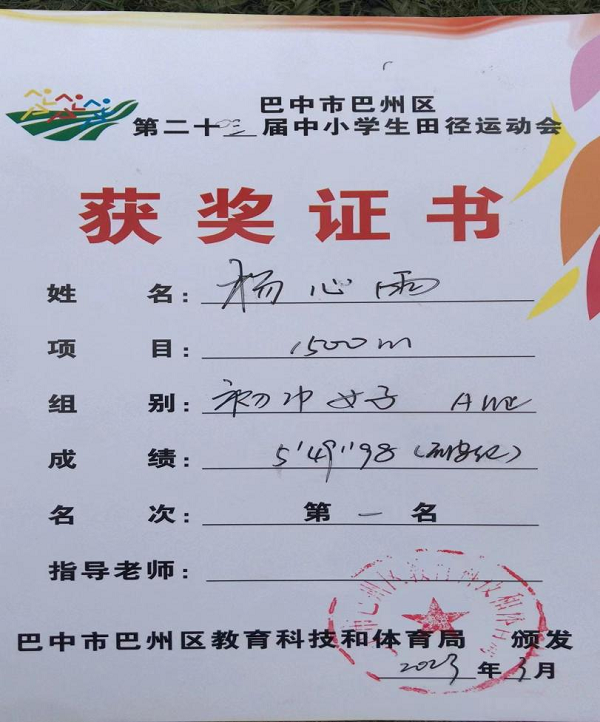 巴中市巴州区
第二十三届中小学生田径运动会
获奖证书
姓 名: 杨心雨
项 目: 1500m
组 别: 初中女子 A组
成 绩: 5'49"98 (破纪录)
名 次: 第一名
指导老师:
巴中市巴州区教育科技和体育局 颁发
2023年3月